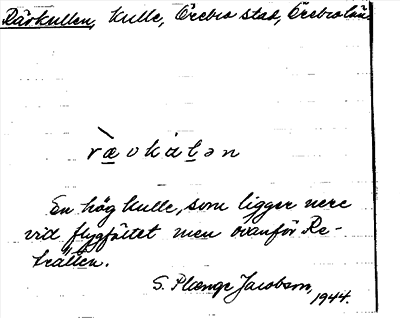 Rävkullen, Kulle, Örebro stad, Örebro län
rævkɵlən
En hög kulle, som ligger nere
vid flygfältet men ovanför Re-
trällen.
S. Plænge Jacobson,
1944.